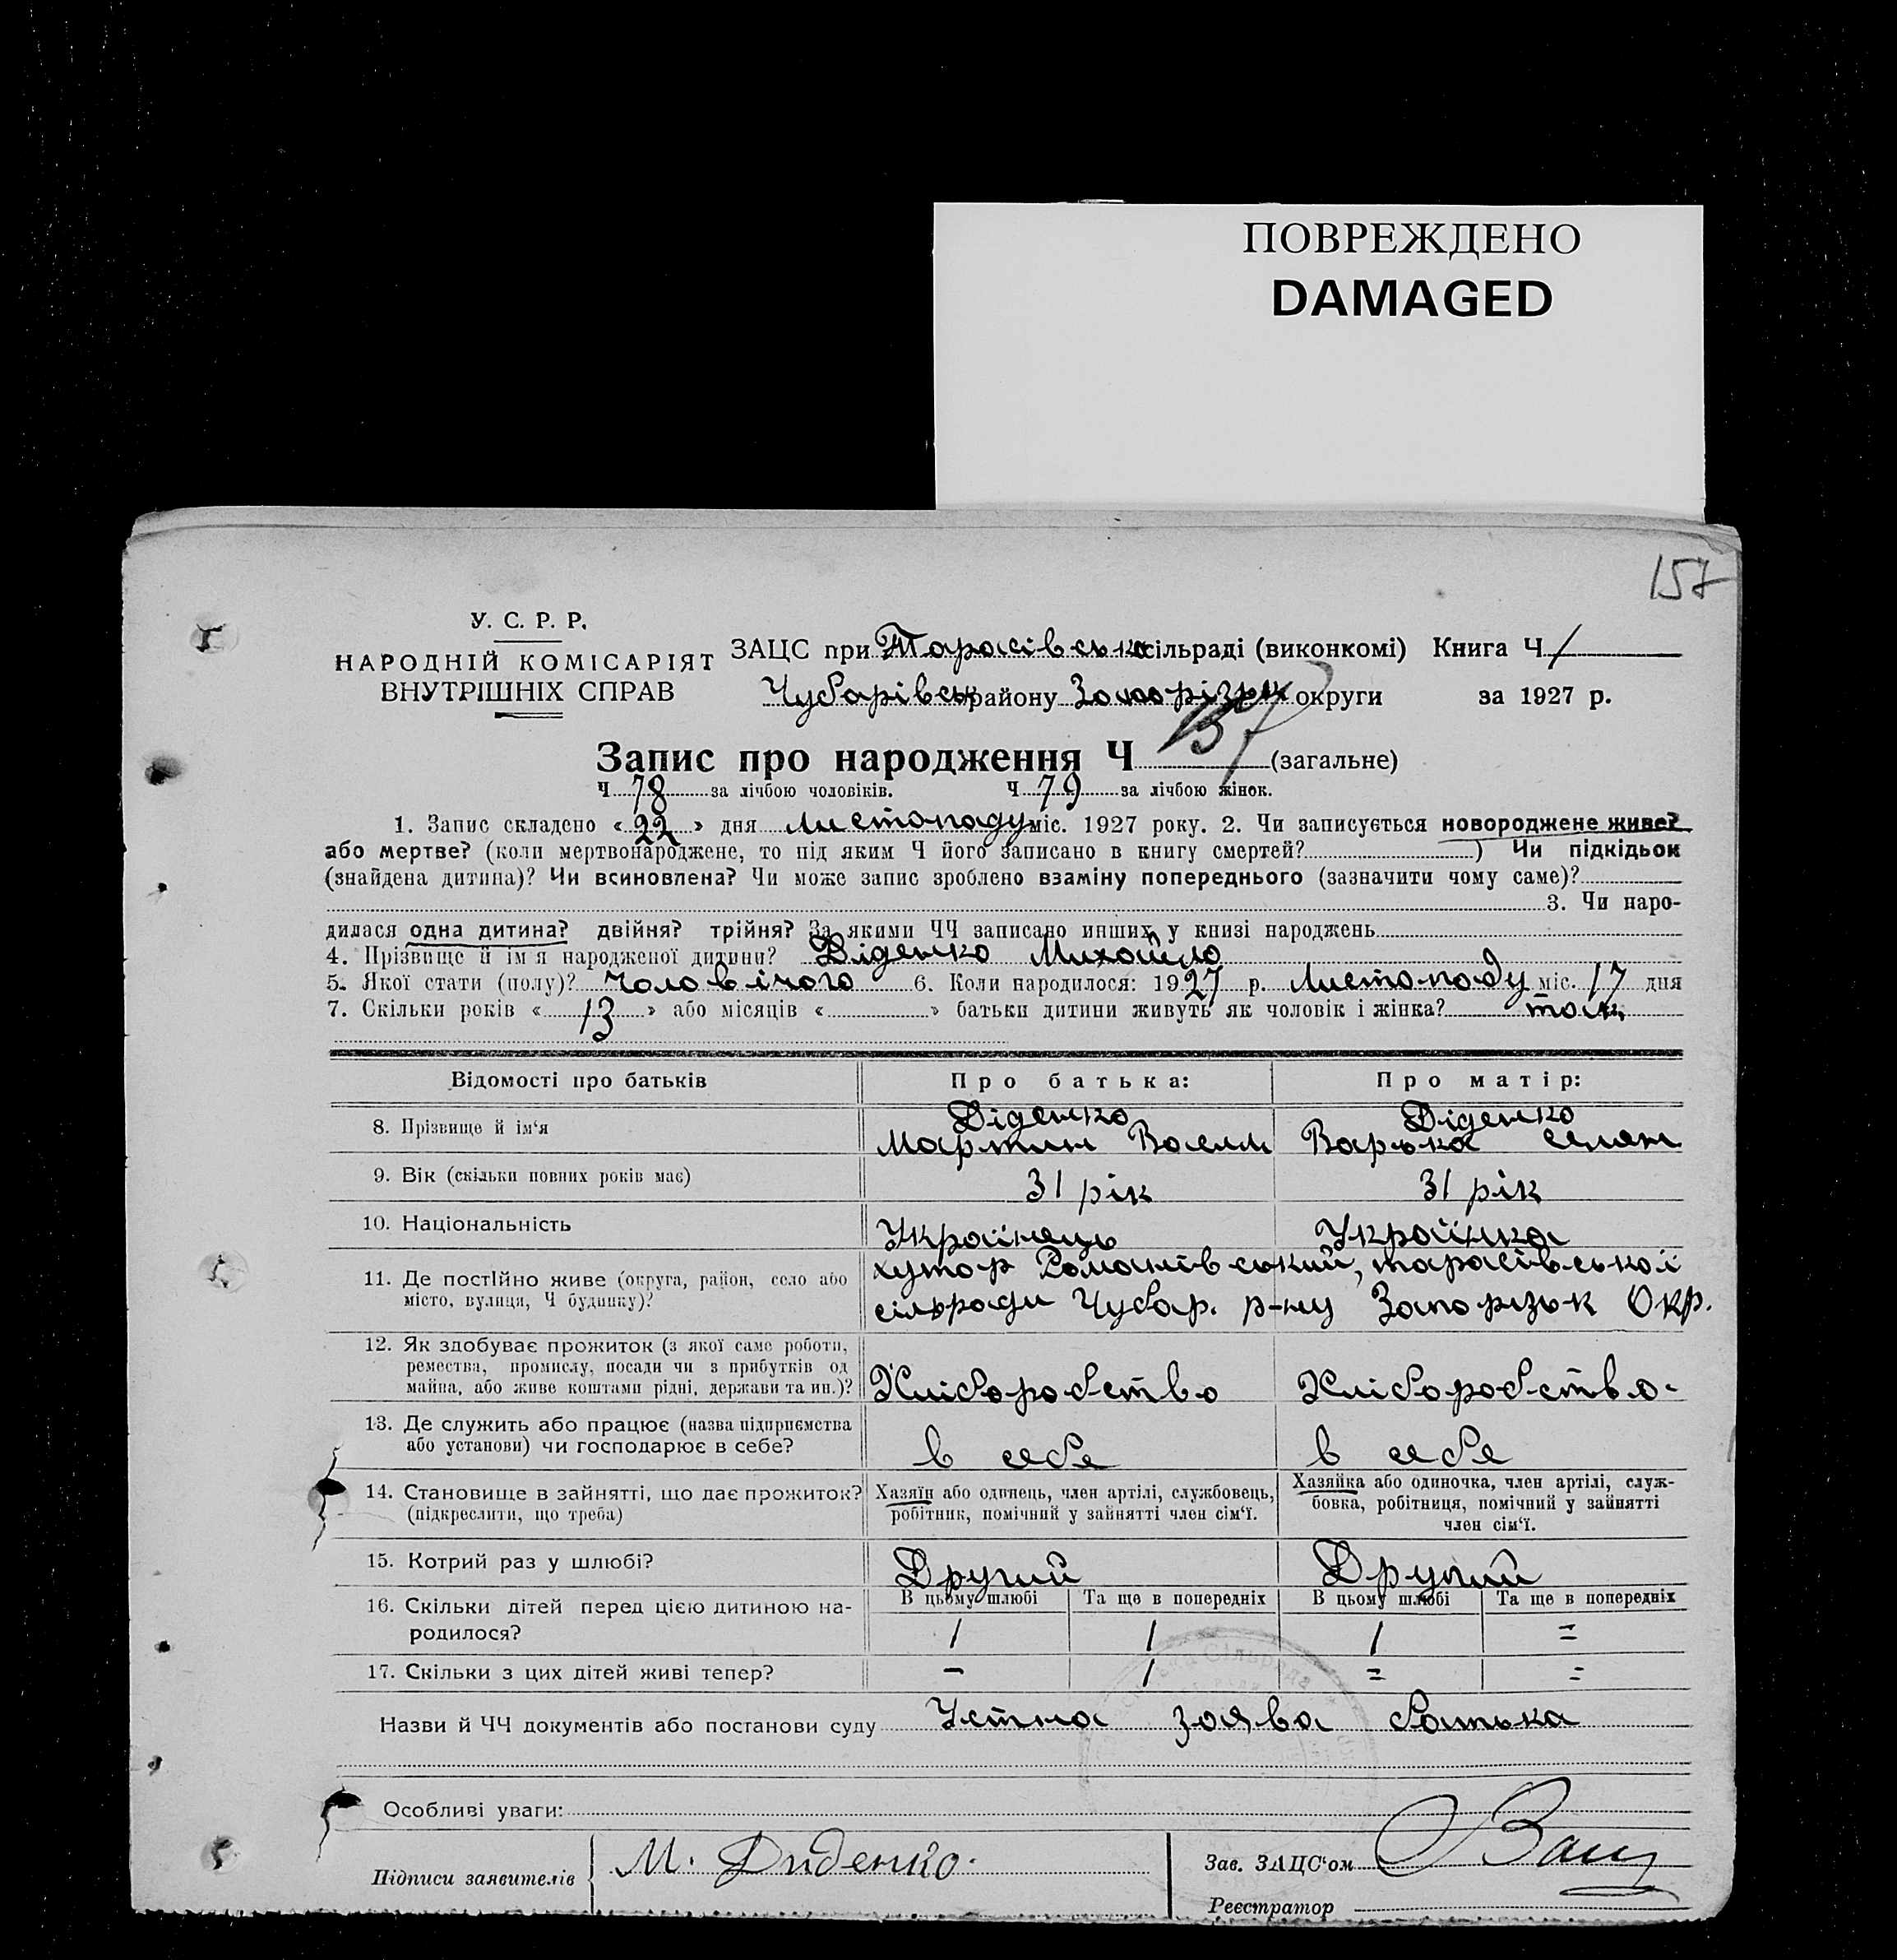 ПОВРЕЖДЕНО
DAMAGED
157
У. С. Р. Р.
НАРОДНІЙ КОМІСАРІЯТ
ВНУТРІШНІХ СПРАВ
ЗАЦС при Тарасівська сільраді (виконкомі) Книга Ч 1
Чубарівськ району Запорізьк округи за 1927 р.
Запис про народження Ч 157 (загальне)
Ч 78 за лічбою чоловіків. Ч 79 за лічбою жінок.
1. Запис складено «22» дня листопаду міс. 1927 року. 2. Чи записується новороджене живе?
або мертве? (коли мертвонароджене, то під яким Ч його записано в книгу смертей?) Чи підкідьок
(знайдена дитина)? Чи всиновлена? Чи може запис зроблено взаміну попереднього (зазначити чому саме)?
3. Чи наро-
дилася одна дитина? двійня? трійня? За якими ЧЧ записано инших у книзі народжень
4. Прізвище й ім'я народженої дитини? Діденко Михайло
5. Якої стати (полу)? чоловічого 6. Коли народилося: 1927 р. Листопаду міс. 17 дня
7. Скільки років «13» або місяців « » батьки дитини живуть як чоловік і жінка? так
Відомості про батьків Про батька: Про матір:
8. Прізвище й ім'я Діденко Діденко
Мартин Варька
9. Вік (скільки повних років має) 31 рік 31 рік
10. Національність Українець Українка
11. Де постійно живе (округа, район, село або хутор Романівський, тарасівської
місто, вулиця, Ч будинку)? сільради Чубар. р-ну Запорізьк Окр.
12. Як здобуває прожиток (з якої саме роботи,
ремества, промислу, посади чи з прибутків од
майна, або живе коштами рідні, держави та ин.)? Хліборобство Хліборобство
13. Де служить або працює (назва підприємства
або установи) чи господарює в себе? в себе в себе
14. Становище в зайнятті, що дає прожиток? Хазяїн або одинець, член артілі, службовець, Хазяйка або одиночка, член артілі, служ-
(підкреслити, що треба) робітник, помічний у зайнятті член сім'ї. бовка, робітниця, помічний у зайнятті
член сім'ї.
15. Котрий раз у шлюбі? Другий Другий
16. Скільки дітей перед цією дитиною на- В цьому шлюбі Та ще в попередніх В цьому шлюбі Та ще в попередніх
родилося? 1 1 1 =
17. Скільки з цих дітей живі тепер? - 1 = =
Назви й ЧЧ документів або постанови суду Устна заява батька
Особливі уваги:
Підписи заявителів М. Диденко.
Зав. ЗАЦС'ом
Реєстратор